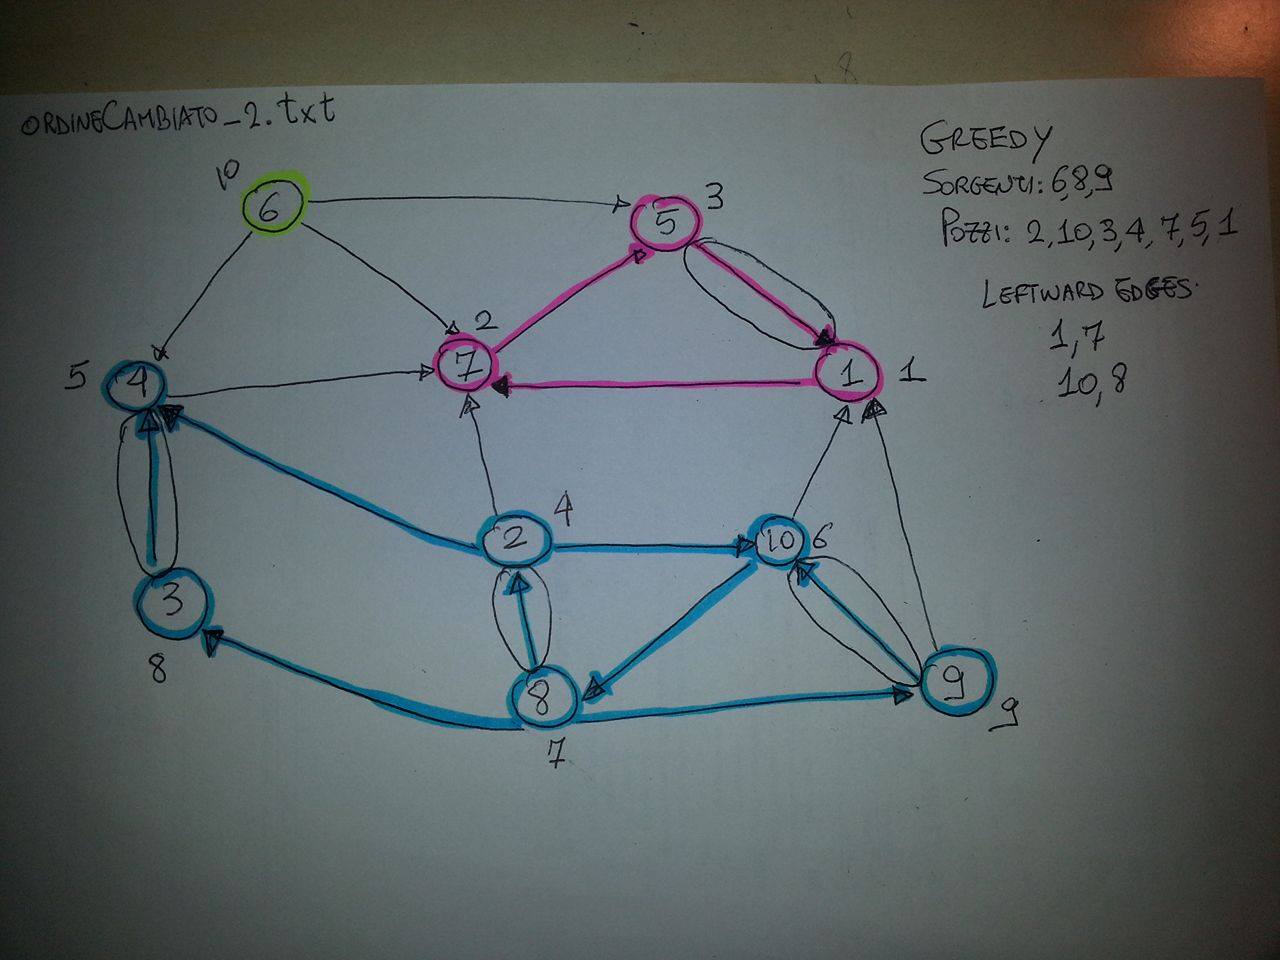 ORDINECAMBIATO_2.txt
GREEDY
SORGENTI: 6,8,9
POZZI: 2,10,3,4,7,5,1
LEFTWARD EDGES
1,7
10,8
10
6
3
5
2
7
5
4
1
1
4
2
10
6
3
8
8
7
9
9